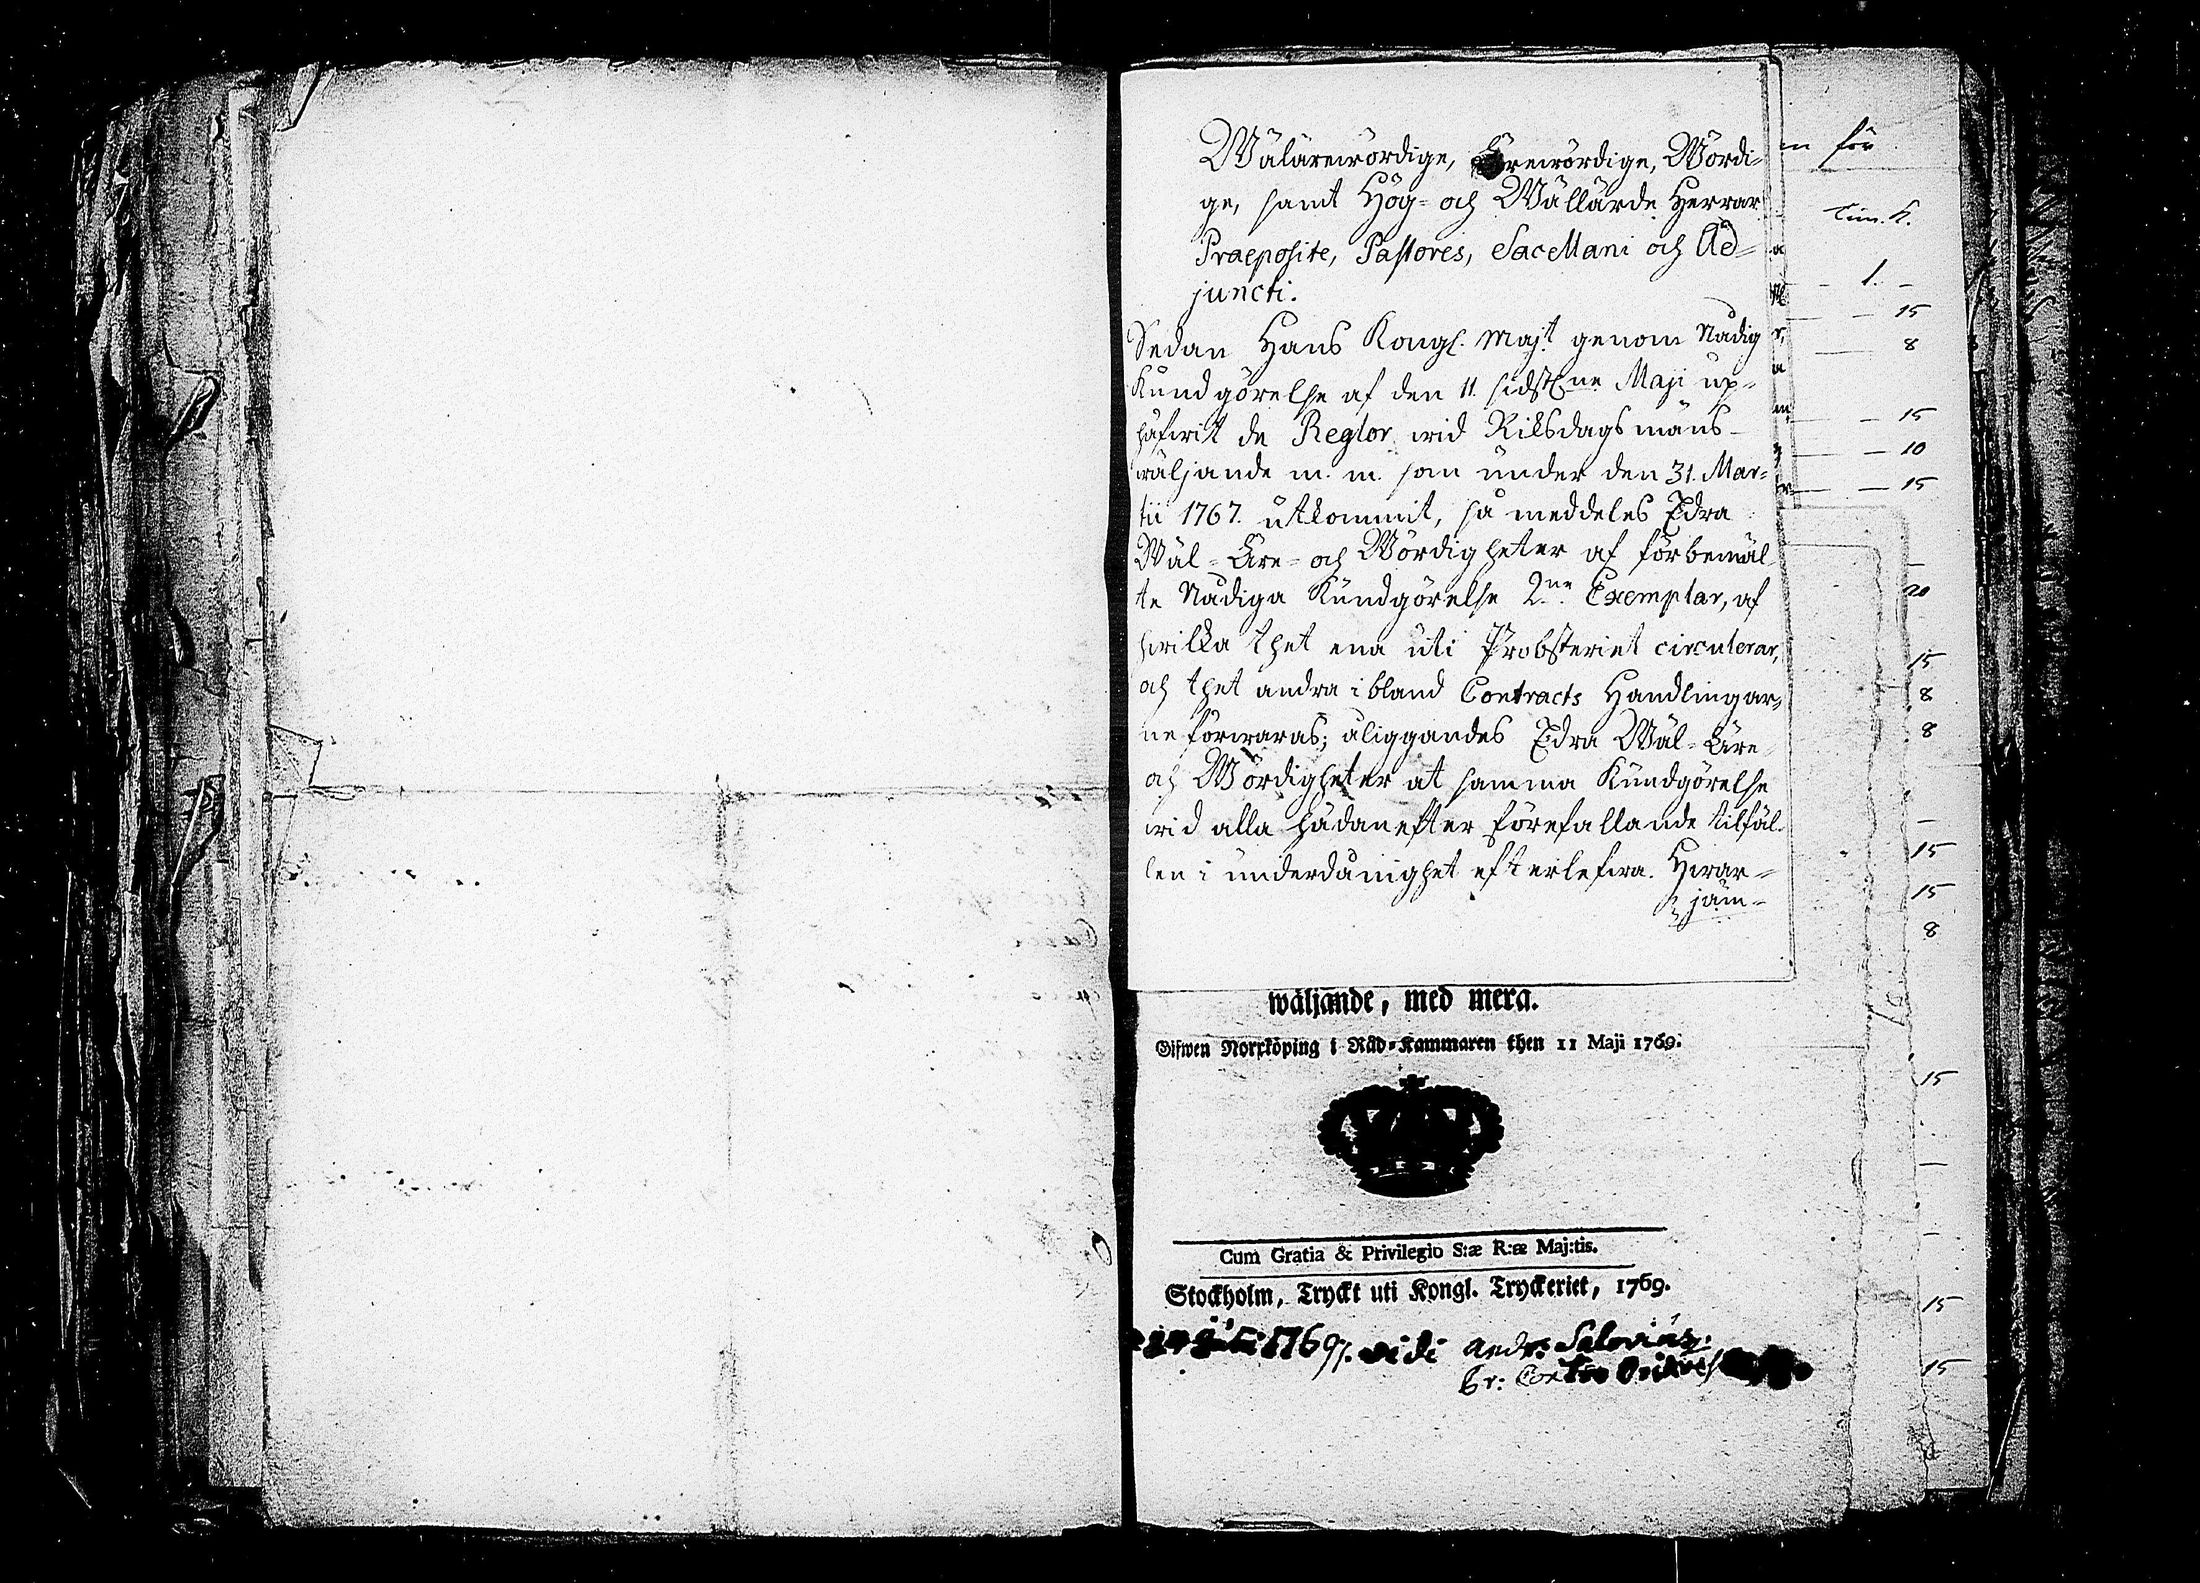 Wälärewördige, Ärewördige, Wördi-
ge, samt Hög- och Wällärde Herrar
Praeposite, Pastores, Sacellani och Ad-
juncti.
Sedan Hans Kongl. Maj:t genom Nådig
Kundgörelse af den 11. sidstl:ne Maji up-
häfwit de Reglor wid Riksdagsmäns-
wäljande m. m. som under den 31. Mar-
tii 1767. utkommit, så meddeles Edra
Wäl- Äre- och Wördigheter af förbemäl-
te Nådiga Kundgörelse 2:ne Exemplar, af
hwilka thet ena uti Probsteriet circulerar,
och thet andra ibland Contracts Handlingar-
ne förwaras; åliggandes Edra Wäl- Äre-
och Wördigheter at samma Kundgörelse
wid alla hädanefter förefallande tilfäl-
len i underdånighet efterlefwa. Hwar-
jäm-
wäljande, med mera.
Gifwen Norrköping i Råd-Kammaren then 11 Maji 1769.
Cum Gratia & Privilegio S:æ R:æ Maj:tis.
Stockholm, Tryckt uti Kongl. Tryckeriet, 1769.
1769. vidi Andr: Salovius.
för
1.
15
8
15
10
15
20
15
8
8
15
15
8
15
15
15